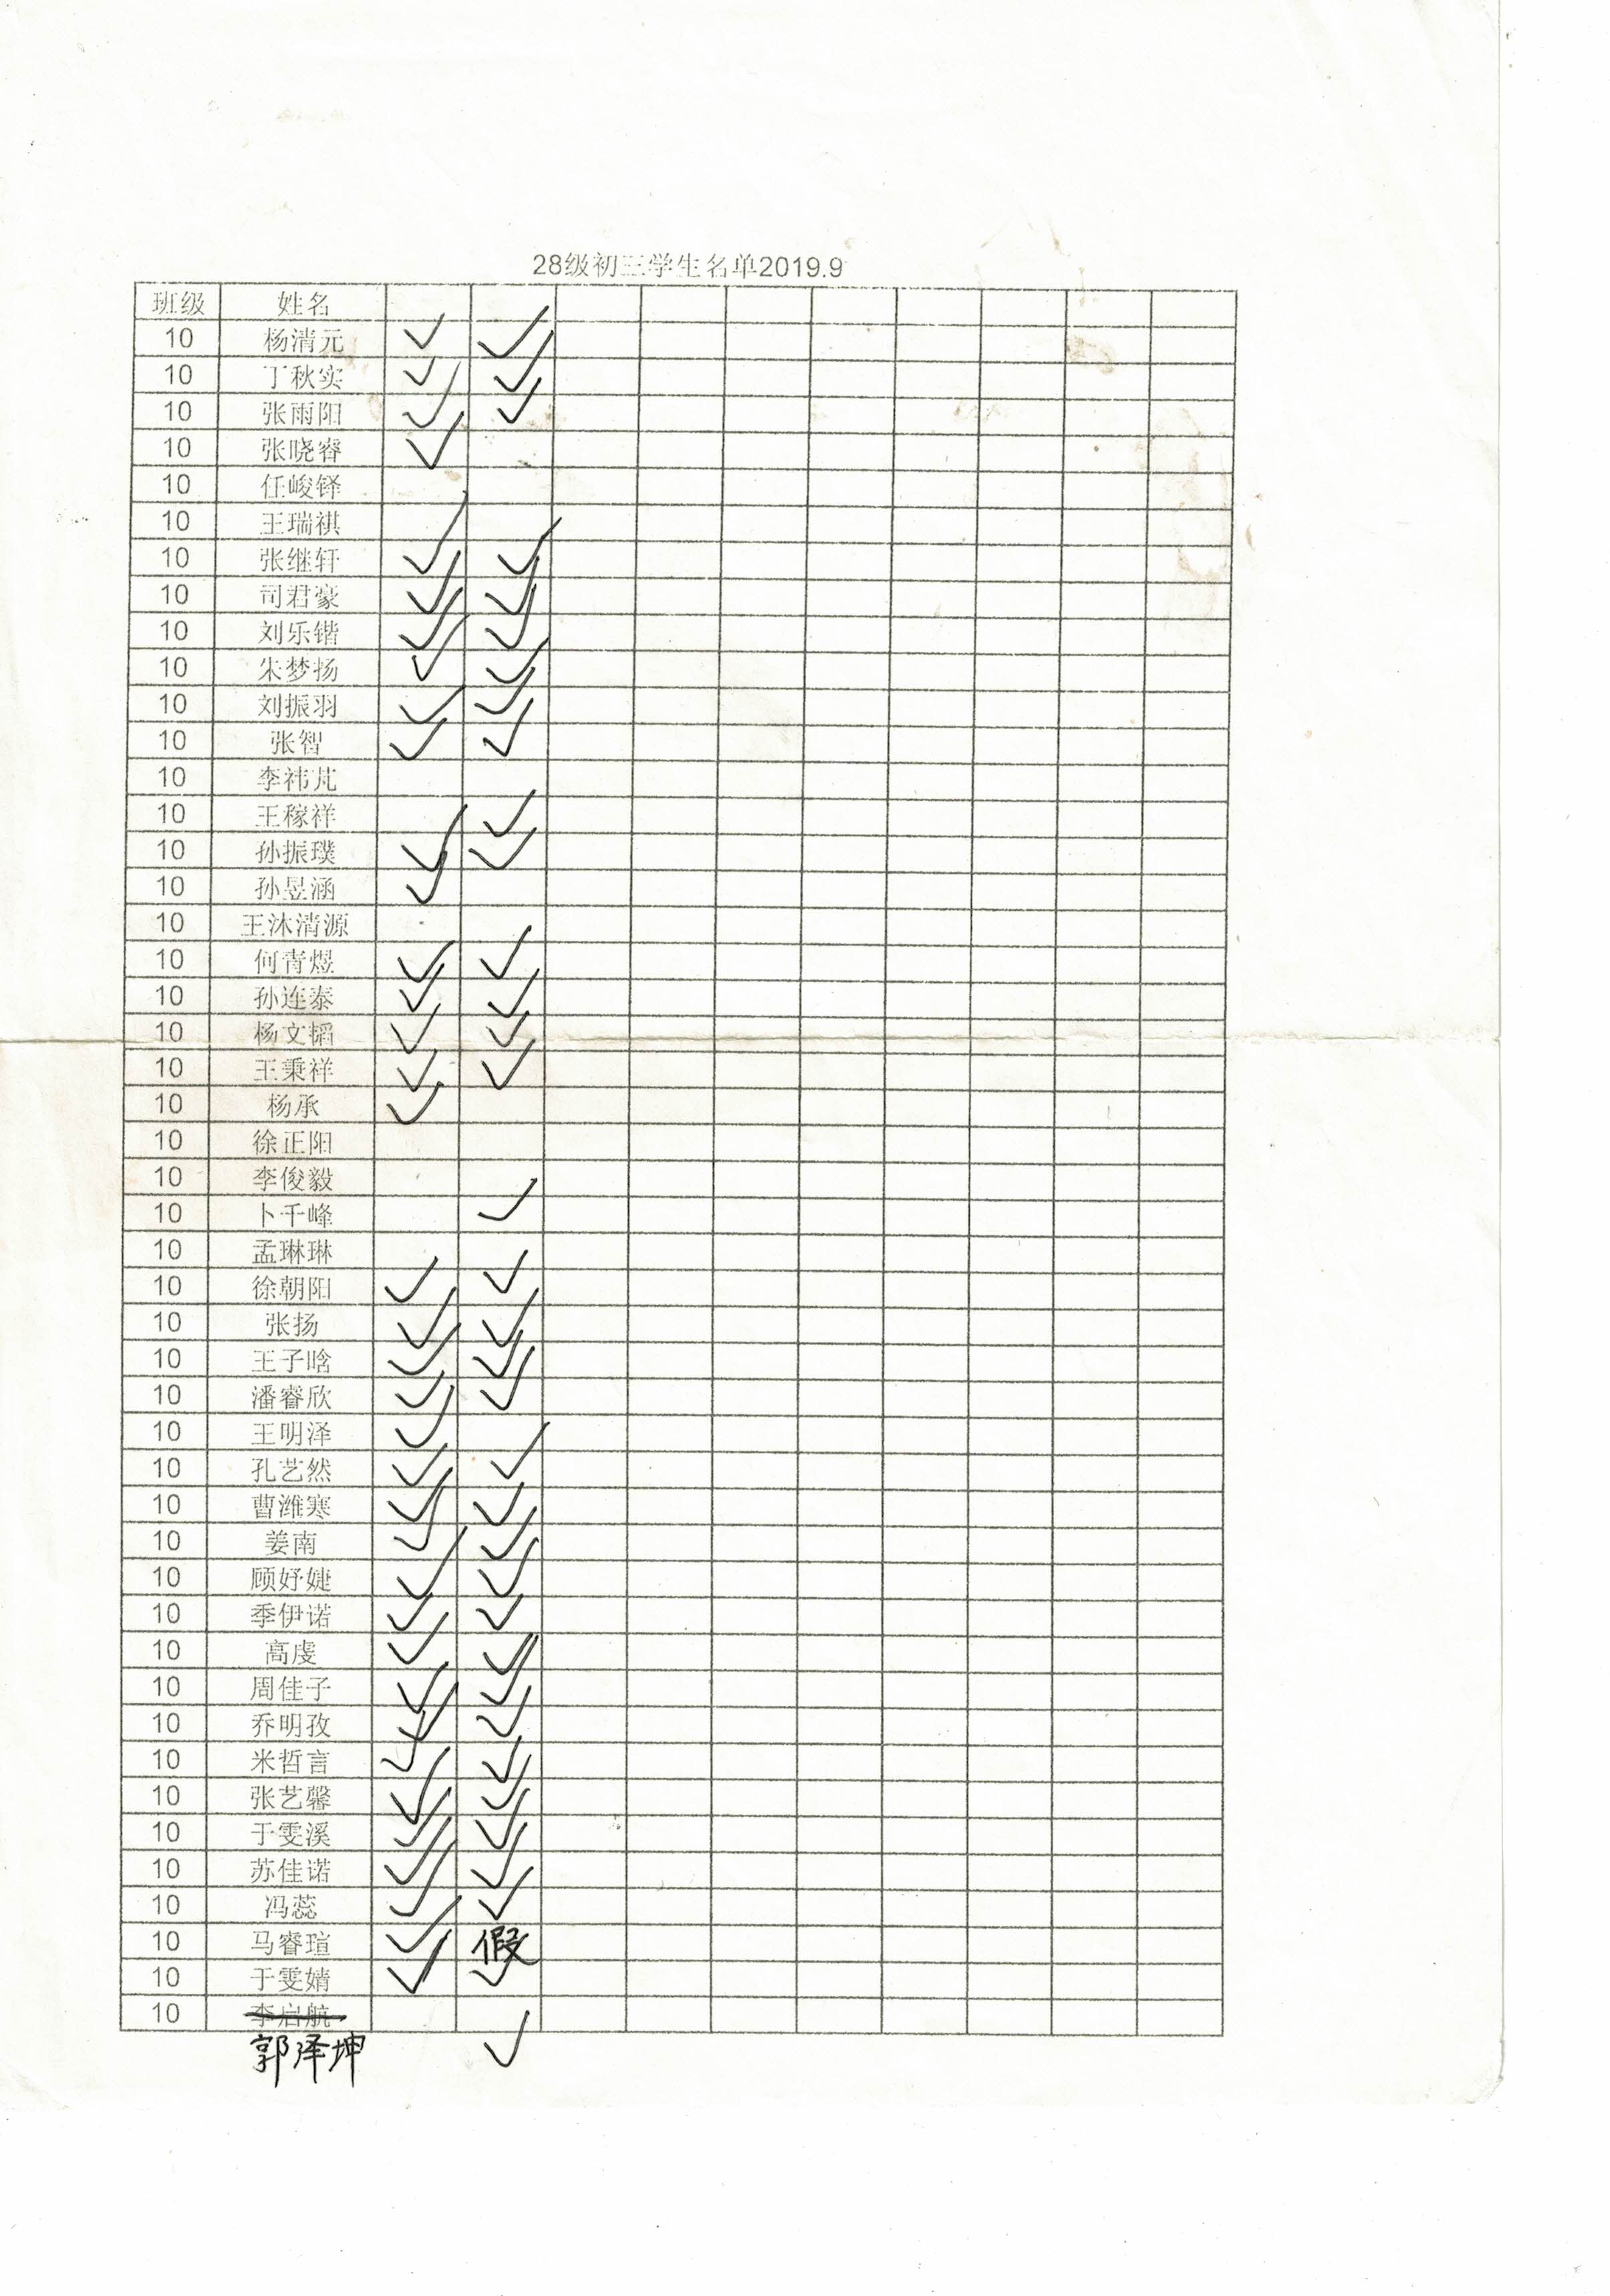 28级初三学生名单2019.9
班级 姓名
10 杨清元 ✓ ✓
10 丁秋实 ✓ ✓
10 张雨阳 ✓ ✓
10 张晓睿 ✓
10 任峻铎
10 王瑞祺
10 张继轩 ✓ ✓
10 司君豪 ✓ ✓
10 刘乐锴 ✓ ✓
10 朱梦扬 ✓ ✓
10 刘振羽 ✓ ✓
10 张智 ✓ ✓
10 李祎芃
10 王稼祥 ✓
10 孙振璞 ✓ ✓
10 孙昱涵 ✓
10 王沐清源
10 何青煜 ✓ ✓
10 孙连泰 ✓ ✓
10 杨文韬 ✓ ✓
10 王秉祥 ✓ ✓
10 杨承 ✓
10 徐正阳
10 李俊毅
10 卜千峰 ✓
10 孟琳琳
10 徐朝阳 ✓ ✓
10 张扬 ✓ ✓
10 王子晗 ✓ ✓
10 潘睿欣 ✓ ✓
10 王明泽 ✓
10 孔艺然 ✓ ✓
10 曹潍寒 ✓ ✓
10 姜南 ✓ ✓
10 顾妤婕 ✓ ✓
10 季伊诺 ✓ ✓
10 高虔 ✓ ✓
10 周佳子 ✓ ✓
10 乔明孜 ✓ ✓
10 米哲言 ✓ ✓
10 张艺馨 ✓ ✓
10 于雯溪 ✓ ✓
10 苏佳诺 ✓ ✓
10 冯蕊 ✓ ✓
10 马睿瑄 ✓ 假
10 于雯婧 ✓ ✓
10 李启航
郭泽坤 ✓